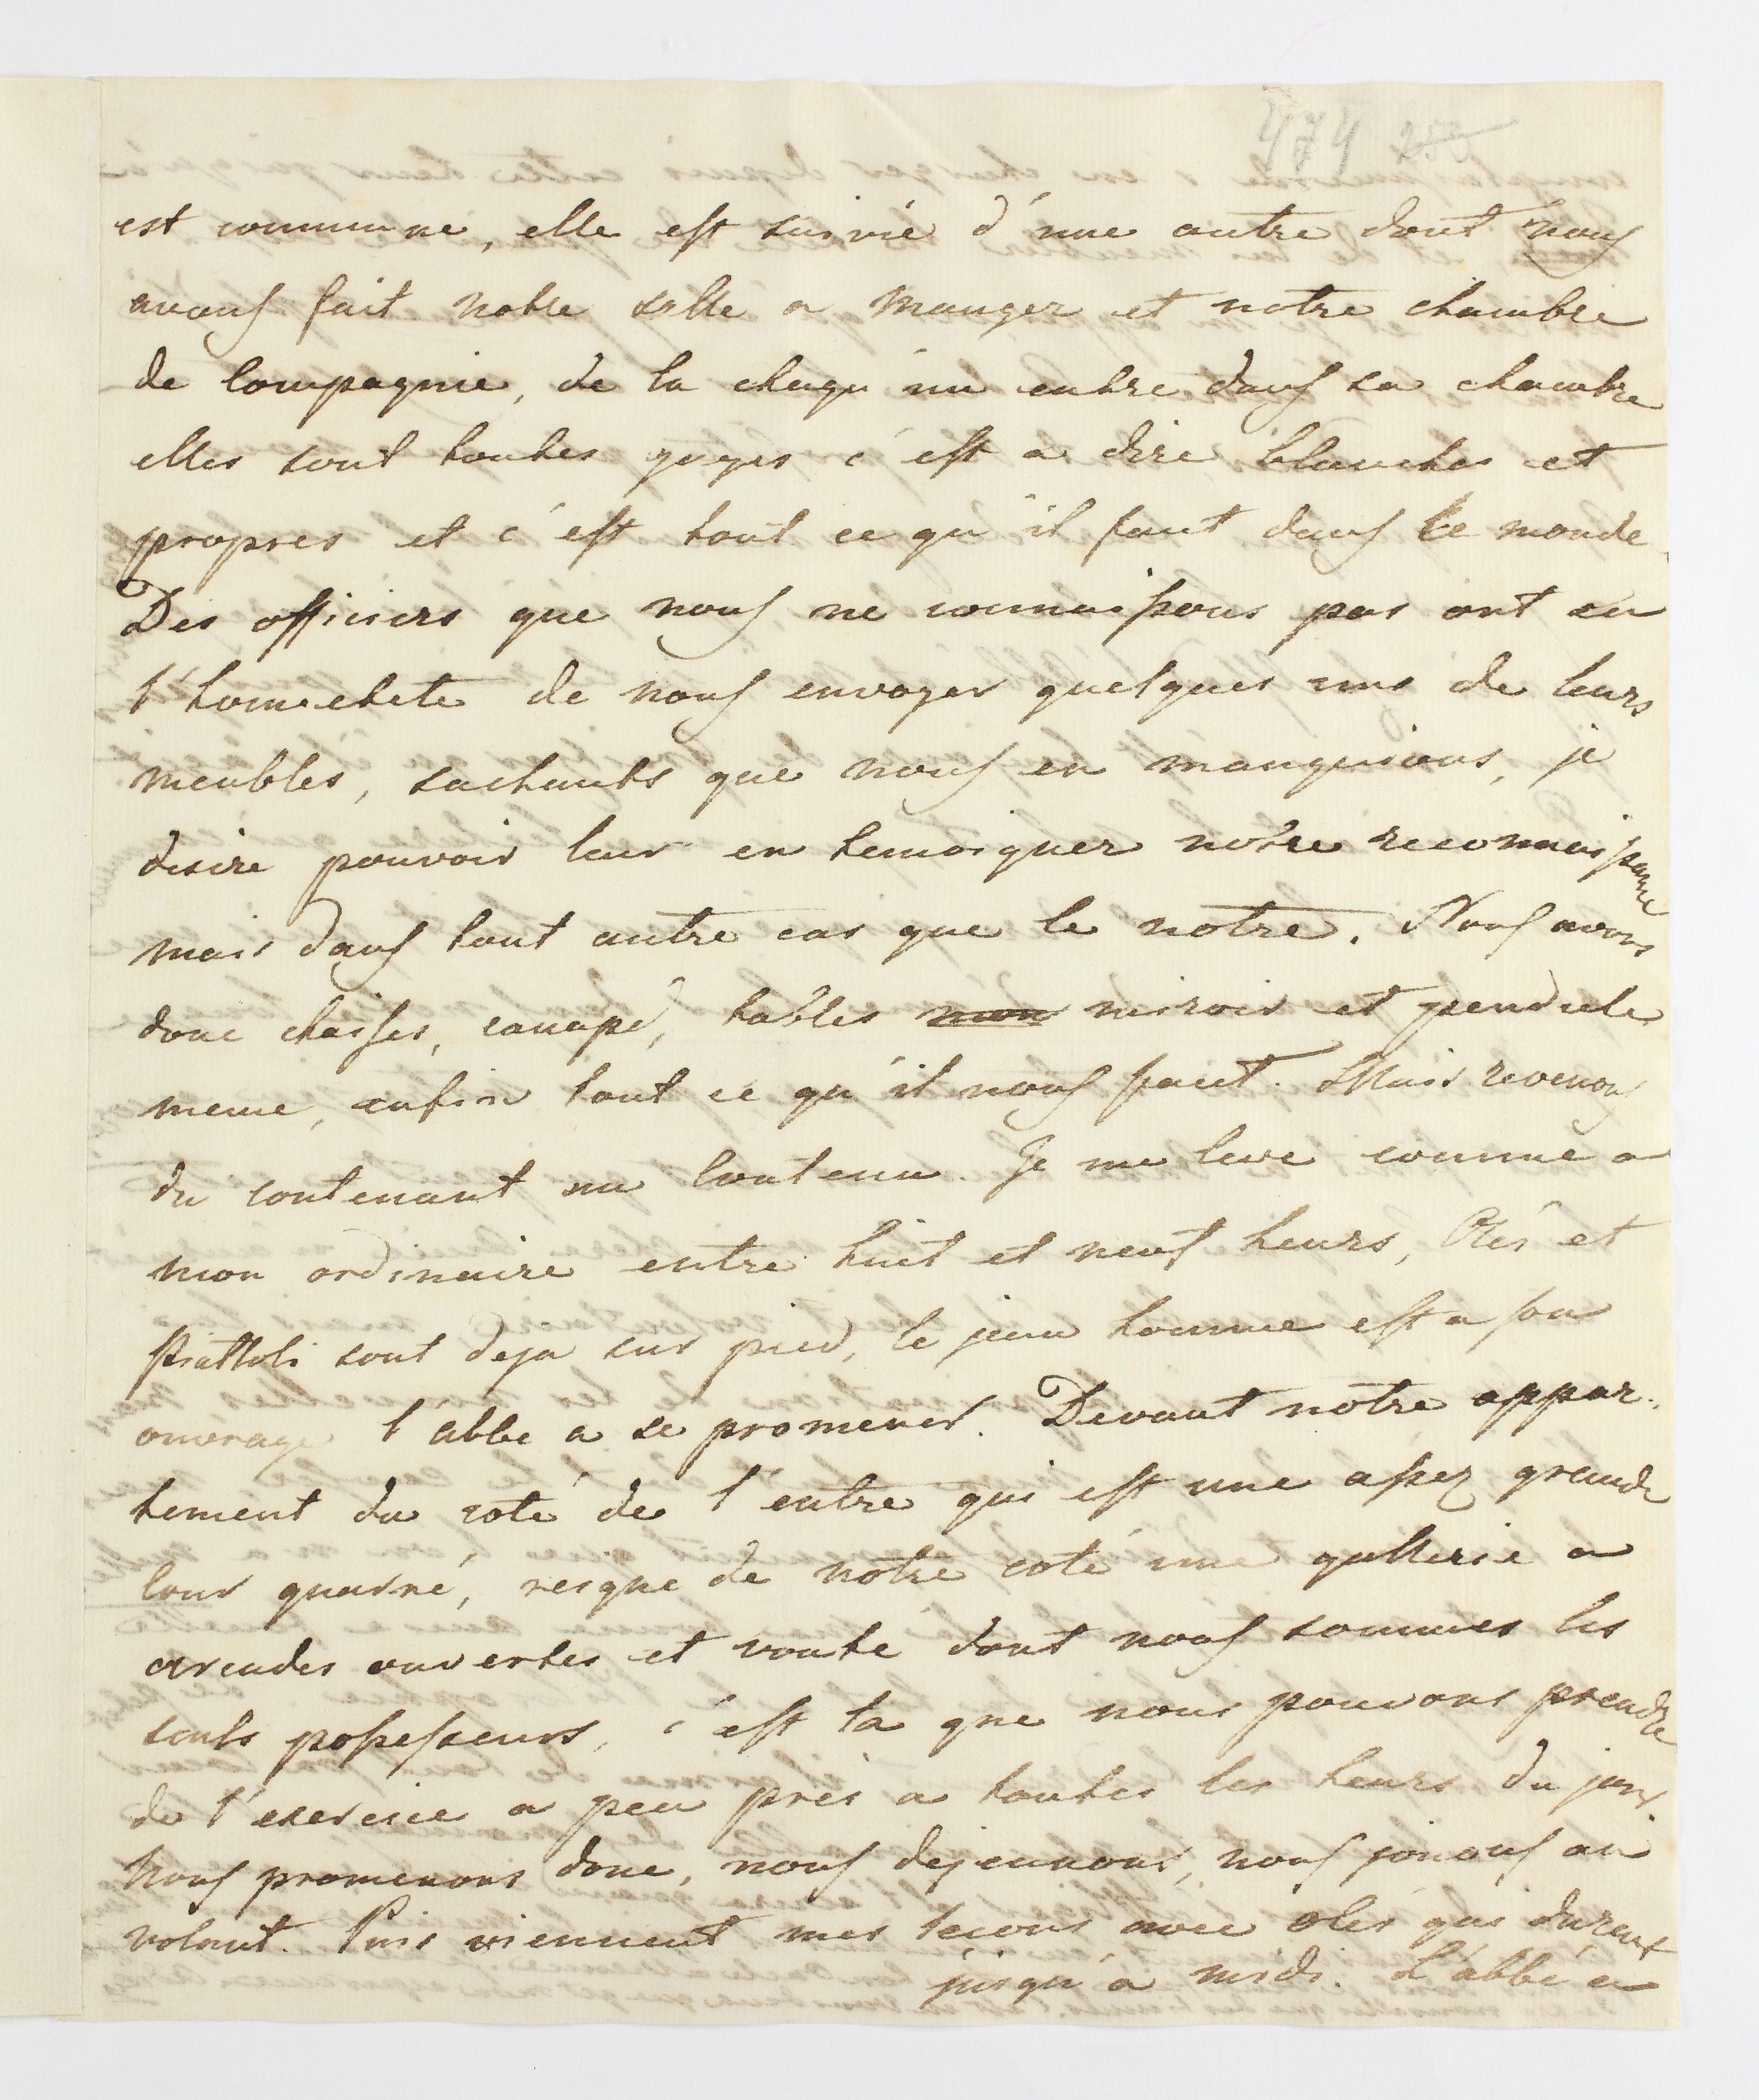 474 253
est commune, elle est suivie d'une autre dont nous
avons fait notre salle a manger et notre chambre
de Compagnie, de la chaqu'un entre dans sa chambre
elles sont toutes gayes c'est a dire blanches et
propres et c'est tout ce qu'il faut dans le monde.
Des officiers que nous ne connaissons pas ont eu
l'honnetete de nous envoyer quelques uns de leurs
meubles, sachants que nous en manquions, je
desire pouvoir leur en temoigner notre reconnaissance
mais dans tout autre cas que le notre. Nous avons
donc chaises, canapé, tables miroir et pendule
meme, enfin tout ce qu'il nous faut. Mais revenons
du contenant au Contenu. Je me leve comme a
mon ordinaire entre huit et neuf heurs, Olés et
Piattoli sont deja sur pied, le jeune homme est a son
ouvrage l'abbe a se promener. Devant notre appar-
tement du coté de l'entre qui est une assez grande
cour quarré, reigne de notre coté une gallerie a
arcades ouvertes et vouté dont nous sommes les
seuls possesseurs, c'est la que nous pouvons prendre
de l'exercice a peu près a toutes les heurs du jour.
Nous promenons donc, nous dejeunons, nous jouons au
volant. Puis viennent mes lecons avec olés qui durent
jusqu'a midi. L'abbé a